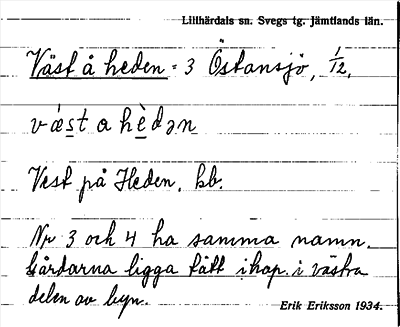 Lillhärdals sn. Svegs tg. Jämtlands län.
Väst å heden = 3 Östansjö, 1/12,
vǽst a hèdən
Vest på Heden, bb.
Nr 3 och 4 ha samma namn.
Gårdarna ligga tätt ihop i västra
delen av byn.
Erik Eriksson 1934.